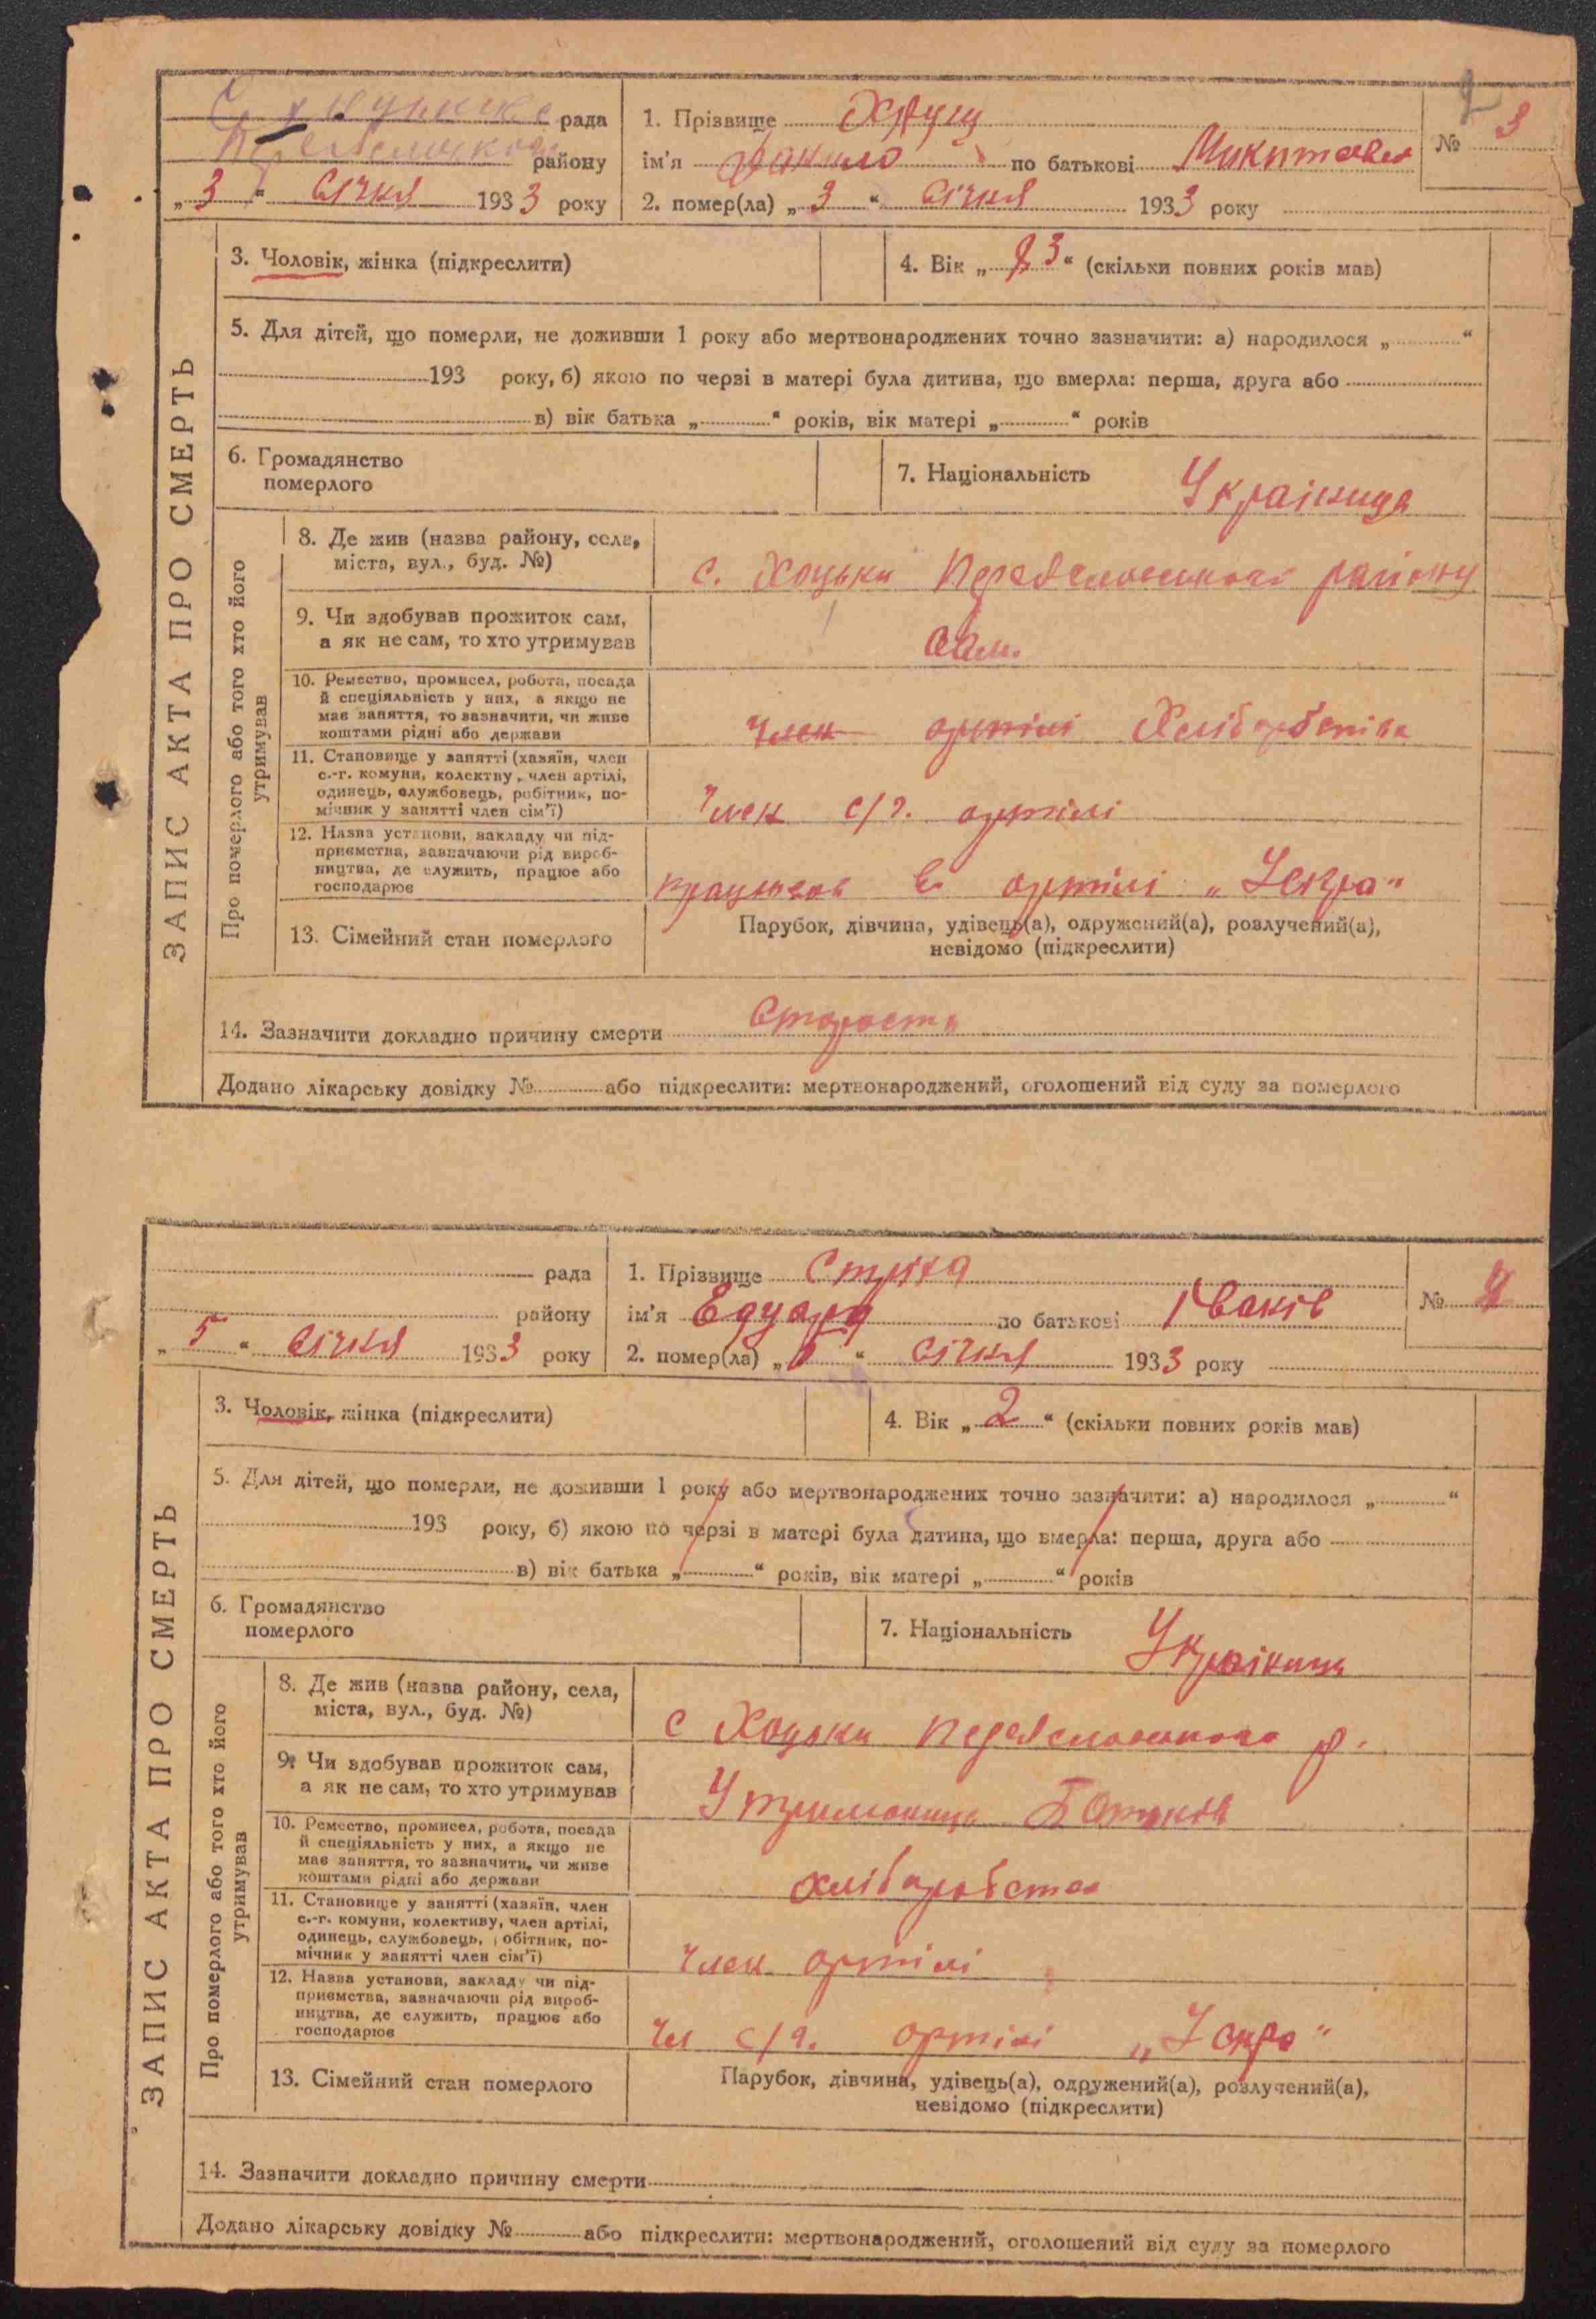 рада
району
„ 3 “ Січня 1933 року
1. Прізвище Хрущ
ім'я Данило по батькові Микитович
2. помер(ла) „ 3 “ Січня 1933 року
№ 3
ЗАПИС АКТА ПРО СМЕРТЬ
3. Чоловік, жінка (підкреслити)
4. Вік „ 83 “ (скільки повних років мав)
5. Для дітей, що померли, не доживши 1 року або мертвонароджених точно зазначити: а) народилося „ “
193 року, б) якою по черзі в матері була дитина, що вмерла: перша, друга або
в) вік батька „ “ років, вік матері „ “ років
6. Громадянство
померлого
7. Національність Українець
Про померлого або того хто його
утримував
8. Де жив (назва району, села,
міста, вул., буд. №)
с. Хоцьки Переяславського району
9. Чи здобував прожиток сам,
а як не сам, то хто утримував
сам.
10. Ремество, промисел, робота, посада
й спеціяльність у них, а якщо не
має заняття, то зазначити, чи живе
коштами рідні або держави
Член артілі Хлібороб
11. Становище у занятті (хазяїн, член
с.-г. комуни, колективу, член артілі,
одинець, службовець, робітник, по-
мічник у занятті член сім'ї)
Член с/г. артілі
12. Назва установи, закладу чи під-
приємства, зазначаючи рід вироб-
ництва, де служить, працює або
господарює
працював в артілі „Іскра“
13. Сімейний стан померлого
Парубок, дівчина, удівець(а), одружений(а), розлучений(а),
невідомо (підкреслити)
14. Зазначити докладно причину смерти Старость
Додано лікарську довідку № або підкреслити: мертвонароджений, оголошений від суду за померлого
рада
району
„ 5 “ Січня 1933 року
1. Прізвище Стріха
ім'я Едуард по батькові Іванів
2. помер(ла) „ “ Січня 1933 року
№ 4
ЗАПИС АКТА ПРО СМЕРТЬ
3. Чоловік, жінка (підкреслити)
4. Вік „ 2 “ (скільки повних років мав)
5. Для дітей, що померли, не доживши 1 року або мертвонароджених точно зазначити: а) народилося „ “
193 року, б) якою по черзі в матері була дитина, що вмерла: перша, друга або
в) вік батька „ “ років, вік матері „ “ років
6. Громадянство
померлого
7. Національність Українець
Про померлого або того хто його
утримував
8. Де жив (назва району, села,
міста, вул., буд. №)
с Хоцьки Переяславського р.
9. Чи здобував прожиток сам,
а як не сам, то хто утримував
Утриманець Батьків
10. Ремество, промисел, робота, посада
й спеціяльність у них, а якщо не
має заняття, то зазначити, чи живе
коштами рідні або держави
хліборобство
11. Становище у занятті (хазяїн, член
с.-г. комуни, колективу, член артілі,
одинець, службовець, робітник, по-
мічник у занятті член сім'ї)
Член артілі
12. Назва установи, закладу чи під-
приємства, зазначаючи рід вироб-
ництва, де служить, працює або
господарює
Чл с/г. артілі „Іскра“
13. Сімейний стан померлого
Парубок, дівчина, удівець(а), одружений(а), розлучений(а),
невідомо (підкреслити)
14. Зазначити докладно причину смерти
Додано лікарську довідку № або підкреслити: мертвонароджений, оголошений від суду за померлого